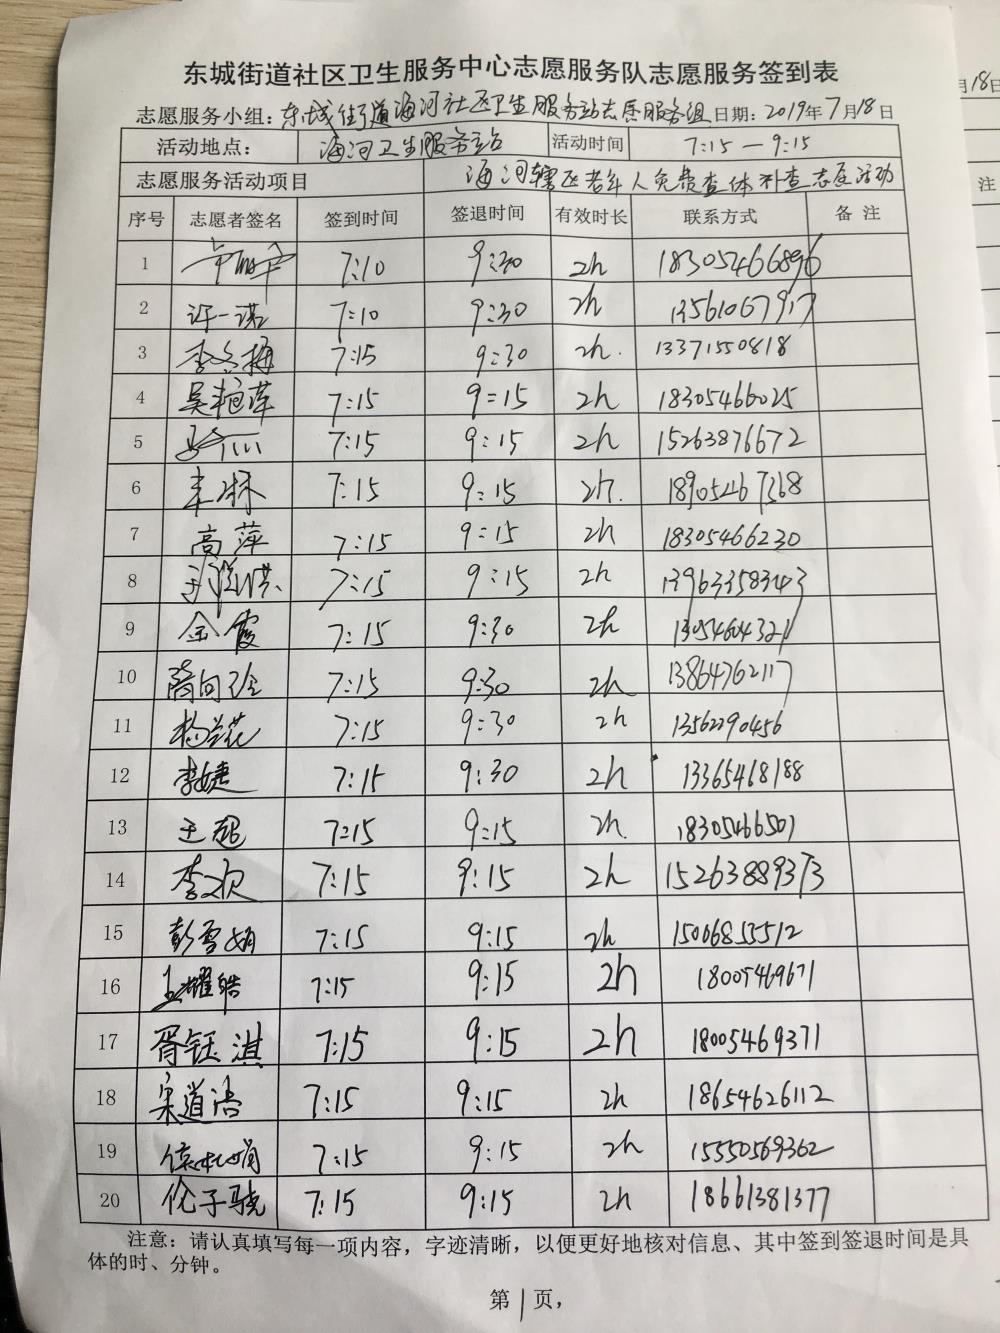 东城街道社区卫生服务中心志愿服务队志愿服务签到表
月18日
志愿服务小组：东城街道海河社区卫生服务站志愿服务组 日期：2019年7月18日
活动地点： 海河卫生服务站 活动时间 7:15 — 9:15
志愿服务活动项目 海河辖区老年人免费查体补查志愿活动
注
序号 志愿者签名 签到时间 签退时间 有效时长 联系方式 备 注
1 7:10 9:30 2h 18305466896
2 许一诺 7:10 9:30 2h 13561067917
3 李冬梅 7:15 9:30 2h. 13371550818
4 吴艳萍 7:15 9=15 2h 18305466025
5 7:15 9:15 2h 15263876672
6 7:15 9:15 2h. 18905467368
7 高萍 7:15 9:15 2h 18305466230
8 7:15 9:15 2h 13963358343
9 金霞 7:15 9:30 2h 13054604321
10 7:15 9:30 2h 13864762117
11 杨兰花 7:15 9:30 2h 13562290456
12 李婕 7:15 9:30 2h 13365468188
13 王超 7:15 9:15 2h. 18305466501
14 李欢 7:15 9:15 2h 15263889373
15 彭雪娟 7:15 9:15 2h 15006853512
16 王耀皓 7:15 9:15 2h 18005469671
17 胥钰淇 7:15 9:15 2h 18005469371
18 渠道浩 7:15 9:15 2h 18654626112
19 7:15 9:15 2h 15550569362
20 伦子骁 7:15 9:15 2h 18661381377
注意：请认真填写每一项内容，字迹清晰，以便更好地核对信息、其中签到签退时间是具
体的时、分钟。
第1页，